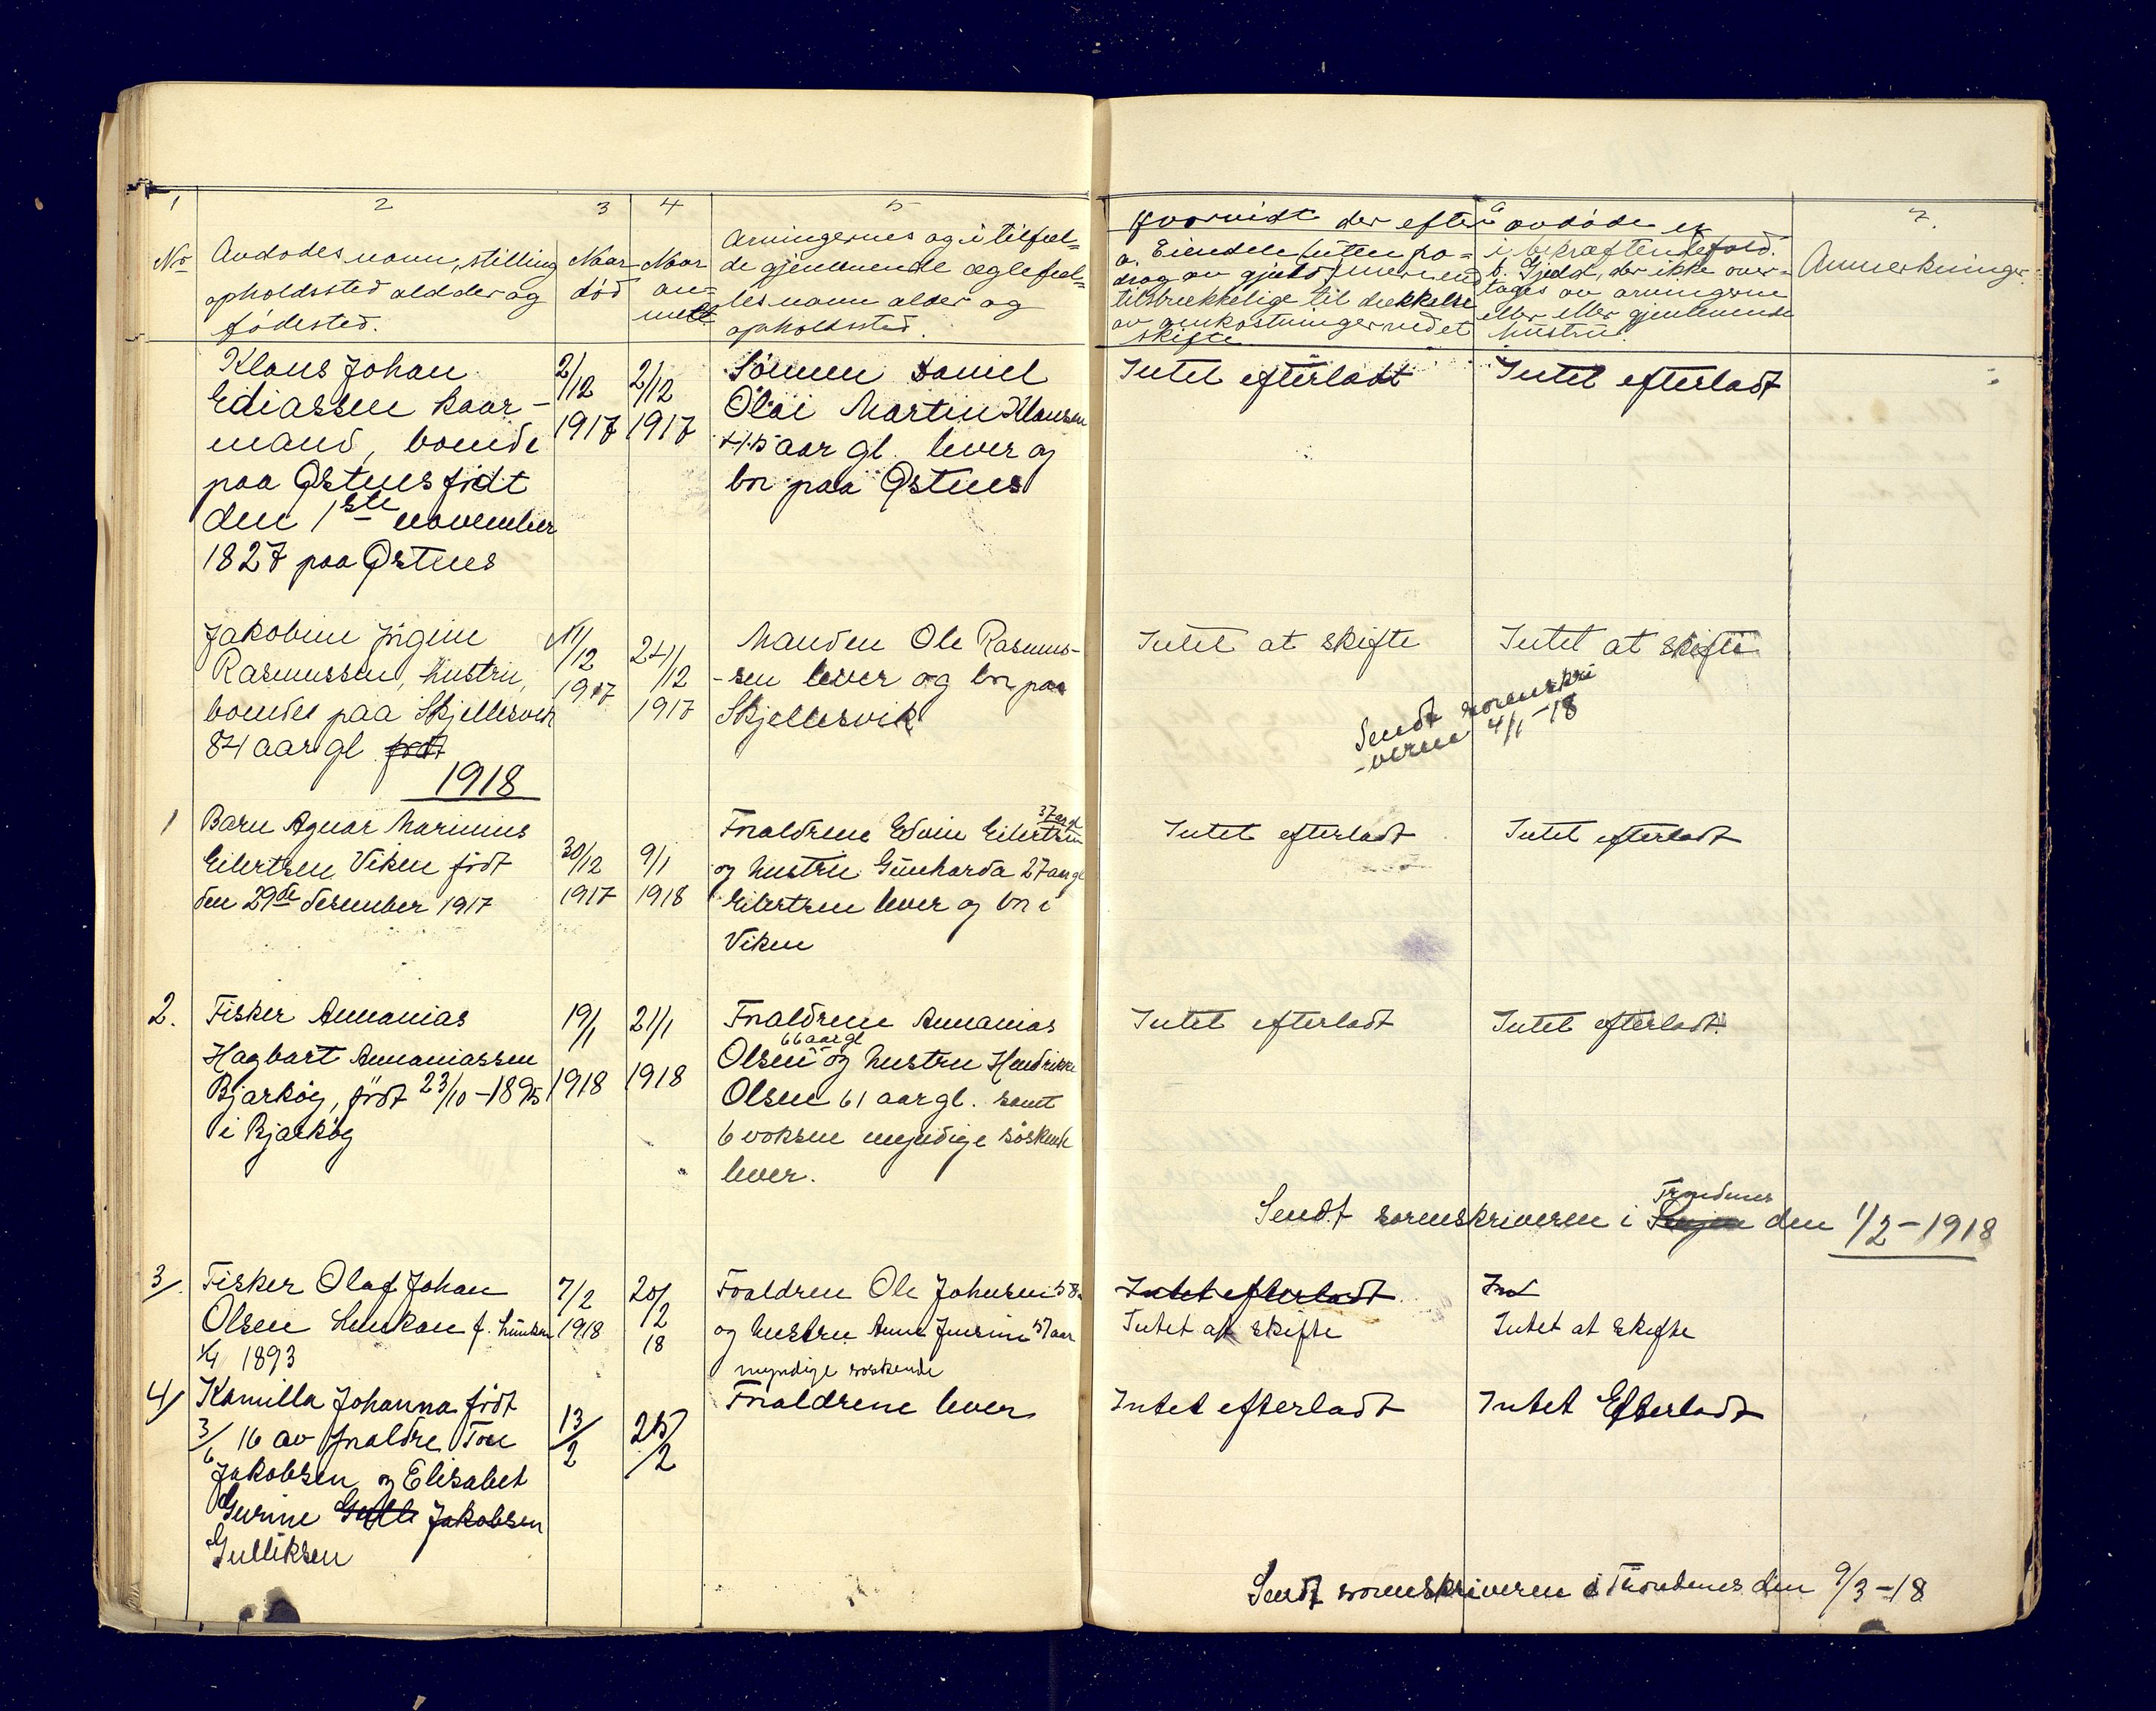 1
2
3
4
5
6
7.
No
Avdødes navn, stilling
opholdssted alder og
fødested.
Naar
død
Naar
an-
meldt
Arvingernes og i tilfæl-
de gjenlevende ægtefæl-
les navn alder og
opholdssted.
Hvorvidt der efter avdøde er
a. Eiendele (uten fra-
drag av gjæld) mere end
tilstrækkelige til dækkelse
av omkostninger vedet
skifte
i bekræftende fald.
b. Gjæld, der ikke over-
tages av arvingerne
eller eller gjenlevende
hustru.
Anmerkninger
Klaus Johan
Ediassen kaar-
mand, boende
paa Østnes født
den 1ste november
1827 paa Østnes
2/12
1917
2/12
1917
Sønnen Daniel
Olai Martin Klausen
45 aar gl. lever og
bor paa Østnes
Intet efterladt
Intet efterladt
Jakobine Jørgine
Rasmussen, hustru,
boende paa Skjellesvik
84 aar gl født
/12
1917
24/12
1917
Manden Ole Rasmus-
-sen lever og bor paa
Skjellesvik
Intet at skifte
Intet at skifte
Sendt sorenskri
-veren 4/1-18
1918
1
Barn Agnar Marinius
Eilertsen Viken født
den 29de desember 1917
30/12
1917
9/1
1918
37 aar
Foraldrene Edvin Eilertsen
og hustru Gunharda 27 aar gl
Eilertsen lever og bor i
Viken
Intet efterladt
Intet efterladt
2.
Fisker Annanias
Hagbart Annaniassen
Bjarkøy, født 23/10-1895
i Bjarkøy
19/1
1918
21/1
1918
Foraldrene Annanias
66 aar gl
Olsen og hustru Hendrikke
Olsen 61 aar gl. samt
6 voksne myndige søskende
lever.
Intet efterladt
Intet efterladt
Trondenes
Sendt sorenskriveren i Senjen den 1/2-1918
3/
Fisker Olaf Johan
Olsen f.
1/4 1893
7/2
1918
20/12
18
Foraldren Ole Johnsen 58
og hustru Anne Jensine 57 aar
myndige søskende
Intet efterladt
Int
Intet at skifte
Intet at skifte
4/
Kamilla Johanna født
3/6 16 av foraldre Tore
Jakobsen og Elisabet
Gurine Gulli Jakobsen
Gulliksen
13/2
25/2
Foraldrene lever
Intet efterladt
Intet Efterladt
Sendt sorenskriveren i Trondenes den 9/3-18